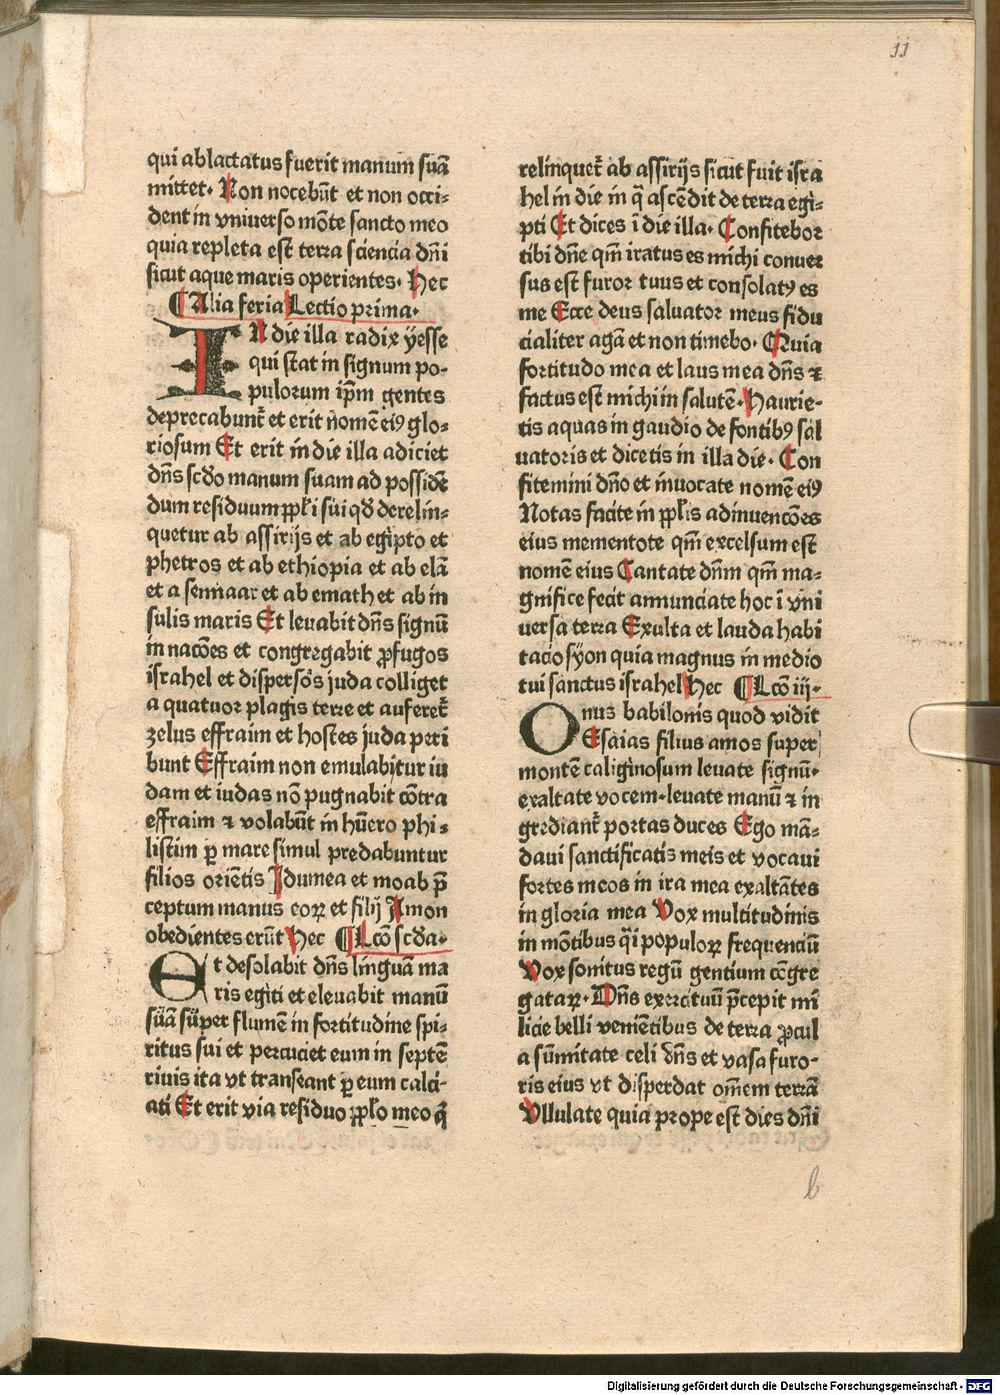 11
qui ablactatus fuerit manum suā
mittet· Non nocebūt et non occi-
dent in vniverso mōte sancto meo
quia repleta est terra sciencia dn̄i
sicut aque maris operientes· Hec
¶ Alia feria Lectio prima·
IN die illa radix ÿesse
qui stat in signum po-
pulorum ip̄m gentes
deprecabunt᷑ et erit nomē eiꝰ glo-
riosum Et erit in die illa adiciet
dn̄s scďo manum suam ad possidē
dum residuum ꝓpl̄i sui qď derelin-
quetur ab assirijs et ab egipto et
phetros et ab ethiopia et ab elā
et a sennaar et ab emath et ab in
sulis maris Et levabit dn̄s signū
in nacōes et congregabit ꝓfugos
israhel et dispersos juda colliget
a quatuor plagis terre et auferet᷑
zelus effraim et hostes juda peri
bunt Effraim non emulabitur iu
dam et iudas nō pugnabit cōtra
effraim ⁊ volabūt in hūero phi-
listim ꝑ mare simul predabuntur
filios oriētis Jdumea et moab p̄
ceptum manus eoꝝ et filij Amon
obedientes erūt Hec ¶ Lcō scďa·
Et desolabit dn̄s linguā ma
ris egipti et elevabit manū
süā süper flumē in fortitudine spi-
ritus sui et percuciet eum in septē
rivis ita vt transeant ꝑ eum calci-
ati Et erit via residuo ꝓpl̄o meo q̄
relinquet᷑ ab assirijs sicut fuit isra
hel in die in q̄ ascēdit de terra egi-
pti Et dices ī die illa· Confitebor
tibi dn̄e qm̄ iratus es michi conver
sus est furor tuus et consolatꝰ es
me Ecce deus salvator meus fidu
cialiter agā et non timebo· Quia
fortitudo mea et laus mea dn̄s ⁊
factus est michi in salutē· Haurie-
tis aquas in gaudio de fontibꝰ sal
uatoris et dicetis in illa die· Con
fitemini dn̄o et invocate nomē eiꝰ
Notas facite in ꝓpl̄is adinvencōes
eius mementote qm̄ excelsum est
nomē eius Cantate dn̄m qm̄ ma-
gnifice fecit annunciate hoc ī vni
versa terra Exulta et lauda habi
tacio sÿon quia magnus in medio
tui sanctus israhel Hec ¶ Lcō iij·
Onus babilonis quod vidit
Esaias filius amos super
montē caliginosum levate signū·
exaltate vocem·levate manū ⁊ in
grediant᷑ portas duces Ego mā-
davi sanctificatis meis et vocavi
fortes meos in ira mea exaltātes
in gloria mea Vox multitudinis
in mōtibus q̄i populoꝝ frequenciū
Vox sonitus regū gentium cōgre
gataꝝ· Dn̄s exercituū p̄cepit mi
licie belli veniētibus de terra ꝓcul
a sūmitate celi dn̄s et vasa furo-
ris eius vt disperdat om̄em terrā
Vllulate quia prope est dies dn̄i
b
Digitalisierung gefördert durch die Deutsche Forschungsgemeinschaft - DFG